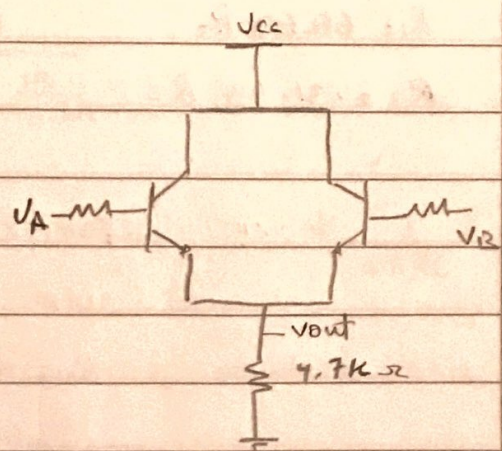 Vcc
VA
VB
Vout
4.7K Ω